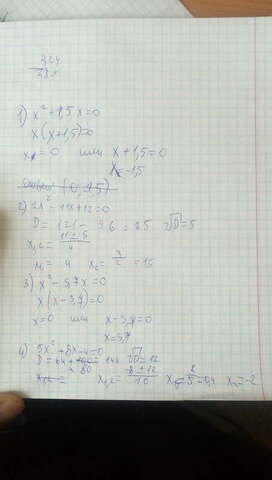 324
1) x² + 1,5x = 0
x(x + 1,5) = 0
x = 0 или x + 1,5 = 0
x = -1,5
Ответ (0, -1,5)
2) 2x² - 11x + 12 = 0
D = 121 - 96 = 25 √D = 5
x₁,₂ = 11 ± 5 / 4
x₁ = 4 x₂ = 3/2 = 1,5
3) x² - 5,7x = 0
x(x - 3,7) = 0
x = 0 или x - 3,7 = 0
x = 5,7
4) 5x² + 8x - 4 = 0
D = 64 + 80 = 144 √D = 12
x₁,₂ = -8 ± 12 / 10 x₁ = 2/5 = 0,4 x₂ = -2